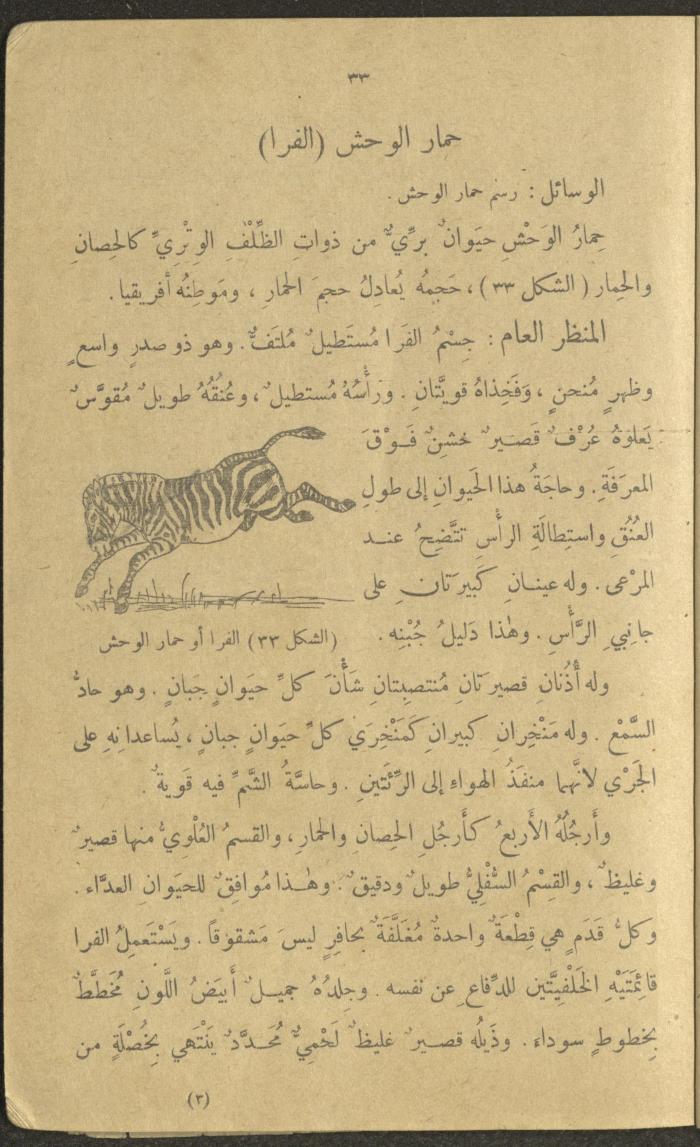 ٣٣
حمار الوحش (الفرا)
الوسائل : رسم حمار الوحش .
حِمارُ الوَحْشِ حيَوانٌ برِّيٌّ من ذواتِ الظِّلْفِ الوِتْرِيِّ كالحصانِ
والحِمار ( الشكل ٣٣ ) ، حَجمُه يُعادِلُ حجمَ الحمارِ ، ومَوطِنُه أفريقيا .
المنظر العام : جِسْمُ الفَرا مُستَطيلٌ مُلتَفٌّ . وهو ذو صدرٍ واسعٍ
وظهرٍ مُنحنٍ ، وَفَخِذاهُ قويَّتانِ . ورأْسُهُ مُستطيلٌ ، وعُنُقُهُ طويلٌ مُقوَّسٌ
يَعلوهُ عُرْفٌ قَصيرٌ خشِنٌ فَوْقَ
المعرَفَةِ . وحاجَةُ هذا الحَيوانِ إلى طولِ
العُنُقِ واستِطالَةِ الرأْسِ تتَّضِحُ عند
المرْعى . وله عينانِ كَبيرَتانِ على
جانِبيِ الرَّأْسِ . وهٰذا دَليلُ جُبْنِه .
(الشكل ٣٣) الفرا أو حمار الوحش
وله أُذُنانِ قصيرَتانِ مُنتصِبتانِ شَأْنَ كلِّ حيَوانٍ جَبانٍ . وهو حادُّ
السَّمْعِ . وله مَنْخِرانِ كبيرانِ كَمَنْخِرَي كلِّ حيَوانٍ جبانٍ ، يُساعدانِهِ على
الجَرْي لأنَّهما منفَذُ الهواءِ إلى الرِّئَتَينِ . وحاسَّةُ الشَّمِّ فيه قَويةٌ .
وأَرجُلُهُ الأَربعُ كأَرجُلِ الحِصانِ والحمارِ ، والقسمُ العُلْوِيُّ منها قصيرٌ
وغليظٌ ، والقِسْمُ السُّفْليُّ طويلٌ ودقيقٌ . وهٰذا مُوافِقٌ للحيَوانِ العدَّاء .
وكلُّ قدَمٍ هي قِطْعَةٌ واحدةٌ مُغَلَّفَةٌ بحافِرٍ ليسَ مَشقوقاً . ويَسْتَعمِلُ الفرا
قائِمَتَيْهِ الخَلْفِيَّتَينِ للدِّفاعِ عن نفسه . وجِلدُهُ جميلٌ أَبيَضُ اللَّونِ مُخَطَّطٌ
بِخطوطٍ سوداء . وذَيلُه قصيرٌ غليظٌ لَحْمِيٌّ مُحَدَّدٌ يَنْتَهي بِخُصْلَةٍ من
(٣)